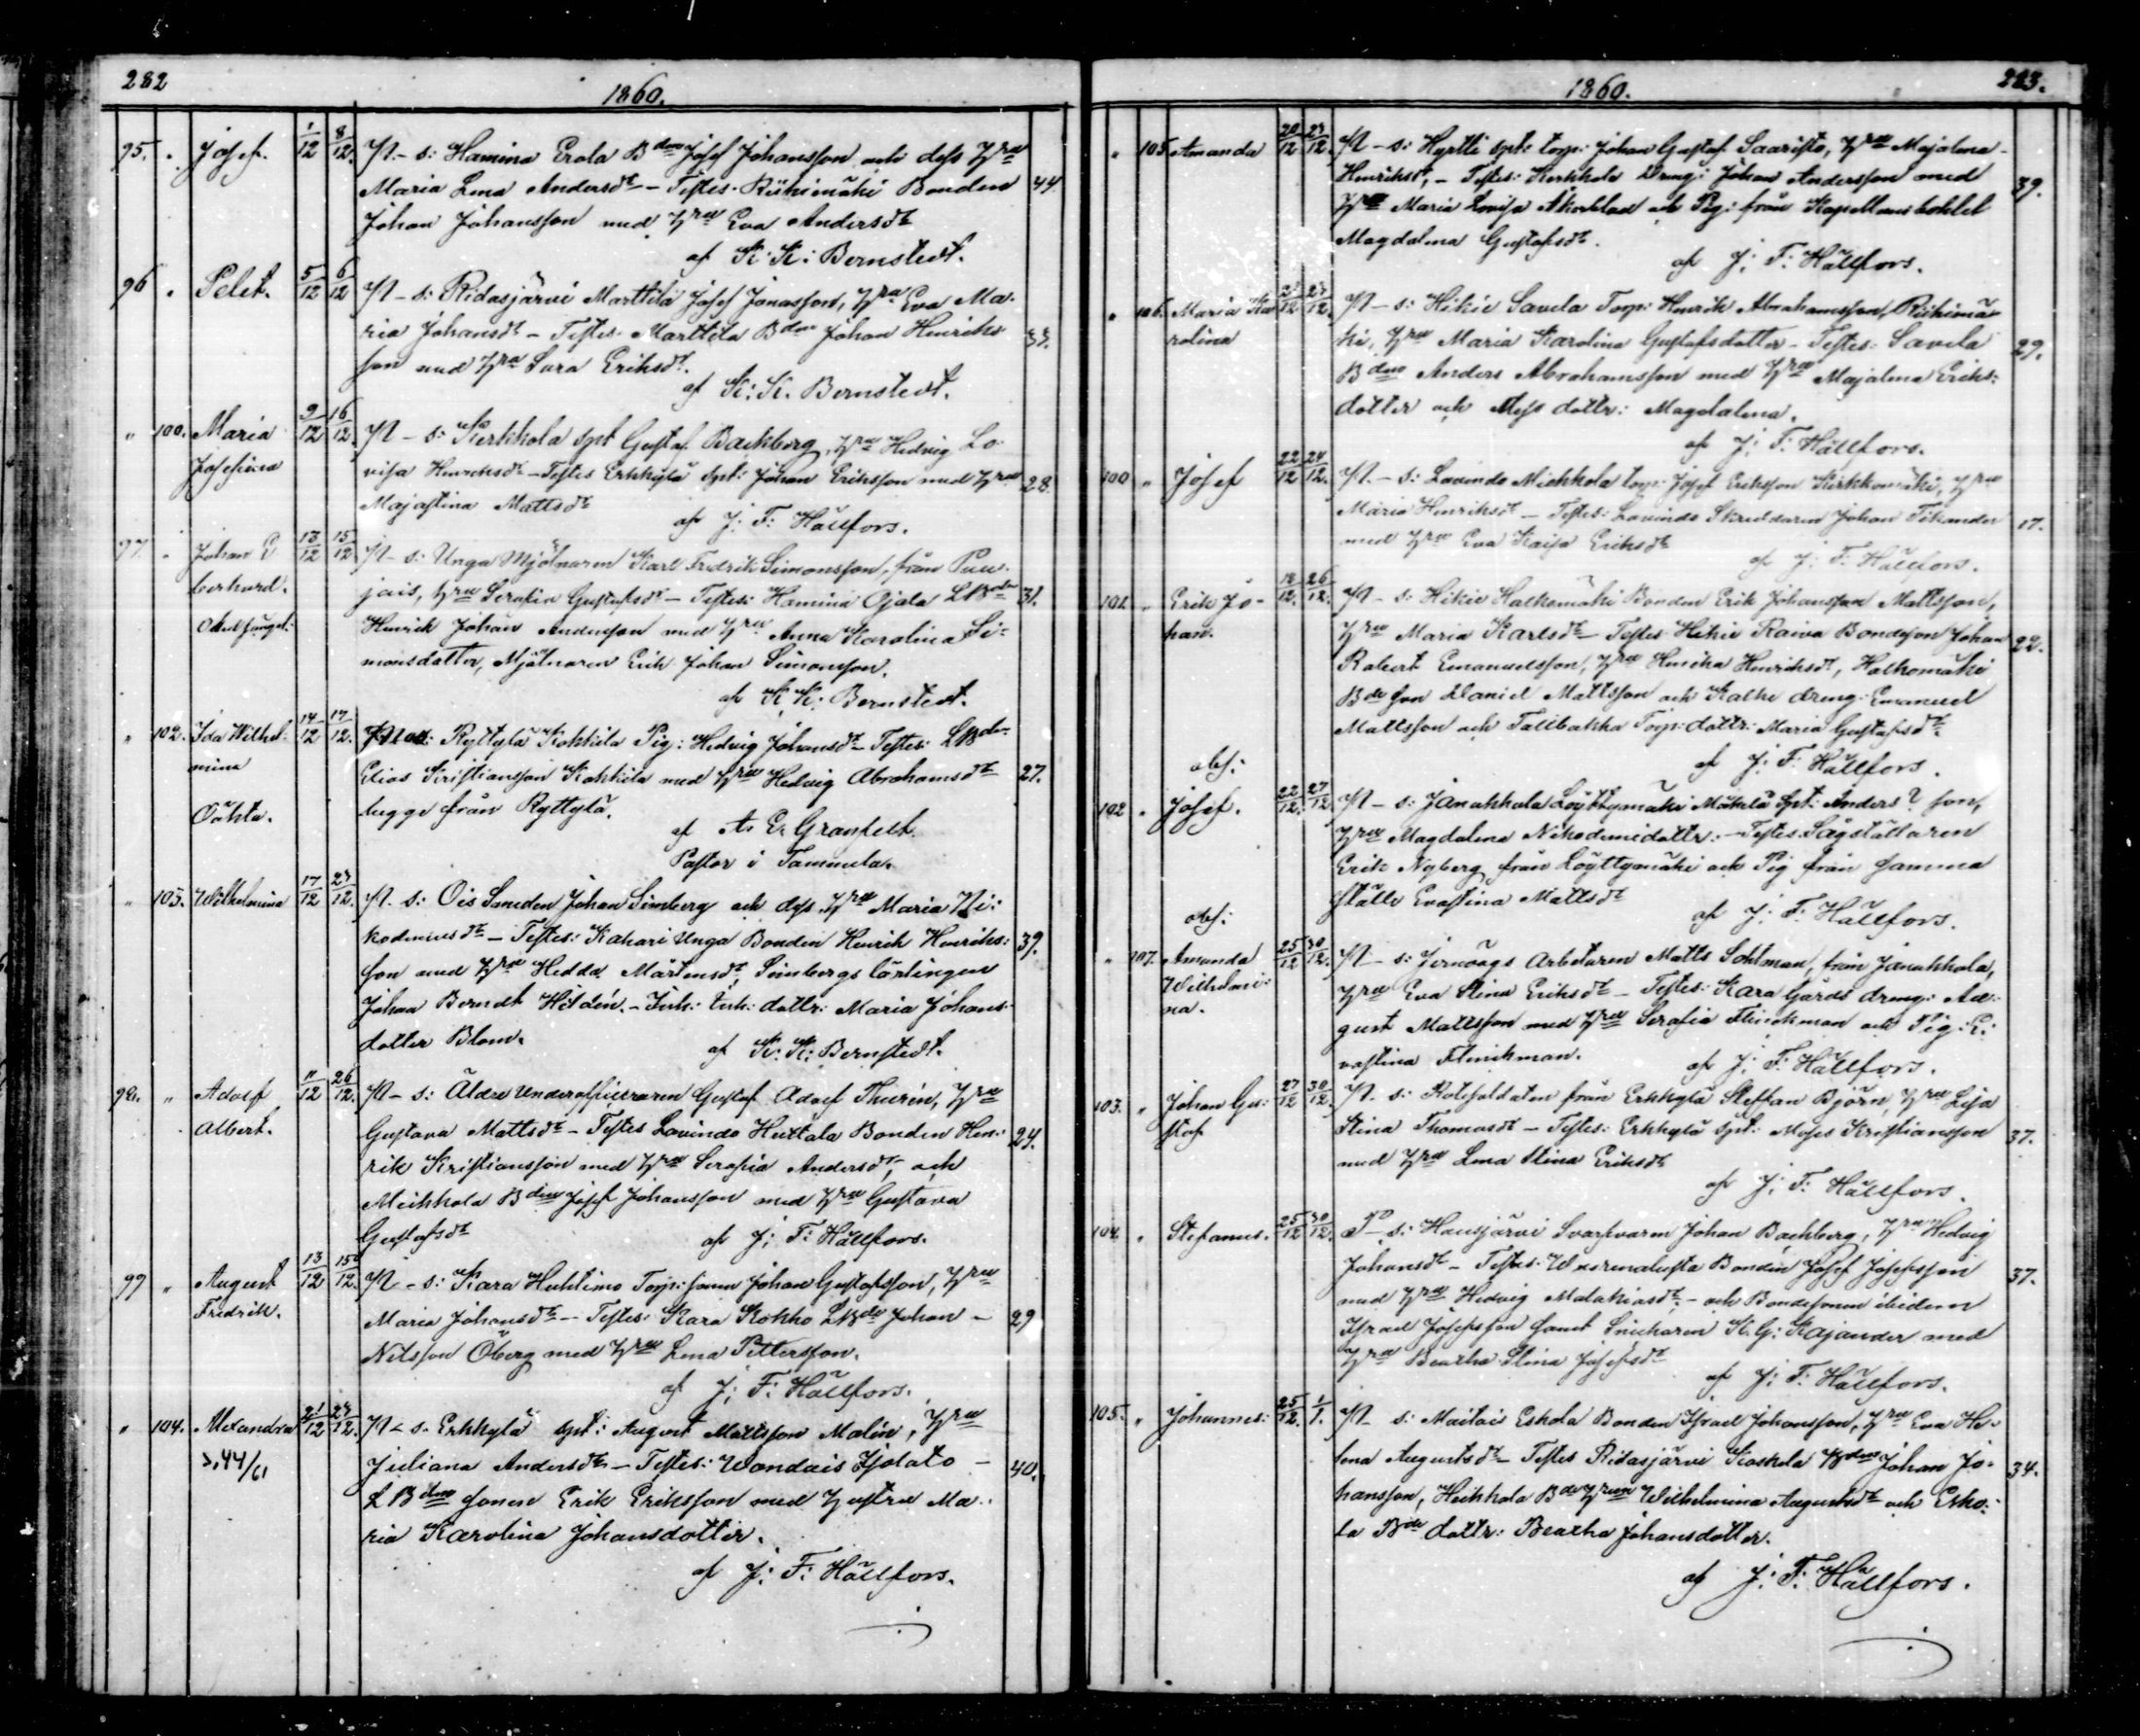 282
1860.
95. " Josef. 1/12 8/12. Pt. - s: Hamina Erola Bden Josef Johansson och dess Hru
Maria Lena Andersdt - Testes. Riihimäki Bonden 44.
Johan Johansson med Hru Eva Andersdt
af K: K: Bernstedt.
96 " Petet. 5/12 6/12 Pt - s: Ridasjärvi Marttila Josef Jonasson, Hru Eva Ma-
ria Johansdt - Testes Marttila Bden Johan Henriks 33.
son med Hru Sara Eriksdt.
af K: K. Bernstedt.
" 100. Maria 9/12 16/12. Pt - s: Kerkkola spt Gustaf Backberg, Hru Hedvig Lo-
Josefina visa Henriksdt - Testes Erkkylä Spt: Johan Eriksson med Hru 28.
Majastina Mattsdt
af J: F: Hällfors.
97. " Johan E 13/12 15/12 Pt - s: Unga Mjölnaren Karl Fredrik Simonsson, från Puu-
berhard. jais, Hru Serafia Gustafsdt - Testes: Hamina Ojala LBden 31.
Henrik Johan Andersson med Hru Anna Karolina Si-
monsdotter, Mjölnaren Erik Johan Simonsson.
af K. K: Bernstedt.
" 102. Ida Wilhel- 14/12 17/12. Ryttylä Kokkila Pig: Hedvig Johansdt - Testes: LBden
mina Elias Kristiansson Kokkila med Hru Hedvig Abrahamsdt 27.
Oäkta. begge från Ryttylä.
af A. E. Granfelt
Pastor i Tammela.
" 103. Wilhelmina 17/12 23/12. Pt. s: Ois Smeden Johan Simberg och dess Hru Maria Ni-
kodemusdt - Testes: Kahari Unga Bonden Henrik Henriks- 39.
son med Hru Hedda Mårtensdt, Simbergs lärlingen
Johan Berndt Hildén. - Inh: Enk: dottr: Maria Johans-
dotter Blom.
af K: K: Bernstedt.
98. " Adolf 11/12 26/12. Pt - s: Äldre Underofficeraren Gustaf Adolf Thurén, Hru
Albert. Gustava Mattsdt - Testes Lavinto Huttala Bonden Hen- 24.
rik Kristiansson med Hru Serafia Andersdt, och
Meikkola Bden Josef Johansson med Hru Gustava
Gustafsdt
af J: F: Hällfors.
99 " August 13/12 15/12. Pt - s: Kara Huhtimo Torp: sonen Johan Gustafsson, Hru
Fredrik. Maria Johansdt - Testes: Kara Kokko LBde Johan - 29
Nilsson Öberg med Hru Lena Pettersson.
af J: F: Hällfors.
" 104. Alexandra 21/12 24/12. Pt - s. Erkkylä spt: August Mattsson Malin, Hru
>. 44/61 Juliana Andersdt - Testes: Wantais Isotalo - 40.
L Bdens sonen Erik Eriksson med Hustru Ma-
ria Karolina Johansdotter.
af J: F: Hällfors.
1860.
283.
" 105. Amanda 20/12 23/12. Pt - s: Hyrtti spt: torp: Johan Gustaf Saaristo, Hru Majalena
Henriksdt, - Testes: Kerkkola Dreng: Johan Andersson med 39.
Hru Maria Lovisa Åkerblad och Pig: från Kapellansbohlet
Magdalena Gustafsdt.
af J: F: Hällfors.
" 106. Maria Ka- 21/12 23/12 Pt - s: Hikiä Savela Torp: Henrik Abrahamsson, Riihimä-
rolina ki, Hru Maria Karolina Gustafsdotter - Testes: Savela 29.
Bden Anders Abrahamsson med Hru Majalena Eriks-
dotter och Dess dottr: Magdalena.
af J: F: Hällfors.
100 " Josef 22/12 24/12. Pt. - s: Lavinto Mickkola torp: Josef Eriksson Kirkkomäki, Hru
Maria Henriksdt - Testes: Lavinto Skreddaren Johan Tikander 17.
med Hru Eva Kaisa Eriksdt
af J: F: Hällfors.
101. " Erik Jo- 18/12. 26/12. Pt - s: Hikiä Halkomäki Bonden Erik Johansson Mattsson,
han. Hru Maria Karlsdt - Testes Hikiä Raiva Bondeson Johan 22.
Robert Emanuelsson, Hru Henrika Henriksdt, Halkomäki
Bde son Daniel Mattsson och Kalke dreng: Emanuel
Mattsson och Tallbacka Torp: dottr: Maria Gustafsdt
af J: F: Hällfors.
obs:
102 " Josef. 22/12. 27/12 Pt - s: Janakkala Löyttymäki Mäkelä Spt: Anders? son,
Hru Magdalena Nikodemidottr: - Testes: Sågställaren
Erik Nyberg från Löyttymäki och Pig från samma
ställe Evastina Mattsdt
af J: F: Hällfors.
obs:
" 107. Amanda 25/12 30/12. Pt - s: Jernvägs Arbetaren Matts Sohlman, från Janakkala,
Wilhelmi- Hru Eva Stina Eriksdt - Testes: Kara Gårds dreng: Au-
na. gust Mattsson med Hru Serafia Flinckman och Pig: E-
vastina Flinckman.
af J: F: Hällfors.
103. " Johan Gu- 27/12 30/12. Pt. s: Rotesoldaten från Erkkylä Steffan Björn, Hru Lisa
staf Stina Thomasdt - Testes: Erkkylä Spt: Moses Kristiansson 37.
med Hru Lena Stina Eriksdt
af J: F: Hällfors.
104. " Stefanus. 25/12 30/12. s: Hausjärvi Svarfvaren Johan Backberg, Hru Hedvig
Johansdt - Testes: Bonden Josef Josefsson 37.
med Hru Hedvig Malakiasdt - och Bondesonen ibidem
Israel Josefsson samt Snickaren K. G: Kajander med
Hru Beatha Stina Josefsdt
af J: F: Hällfors.
105. " Johannes: 25/12. 1/1. Pt - s: Maitais Eskola Bonden Israel Johansson, Hru Eva He-
lena Augustsdt - Testes Ridasjärvi Koskela Bden Johan Jo- 34.
hansson, Heikkola Bde Hrun Wilhelmina Augustsdt och Esko-
la Bde dottr: Beatha Johansdotter.
af J: F: Hällfors.